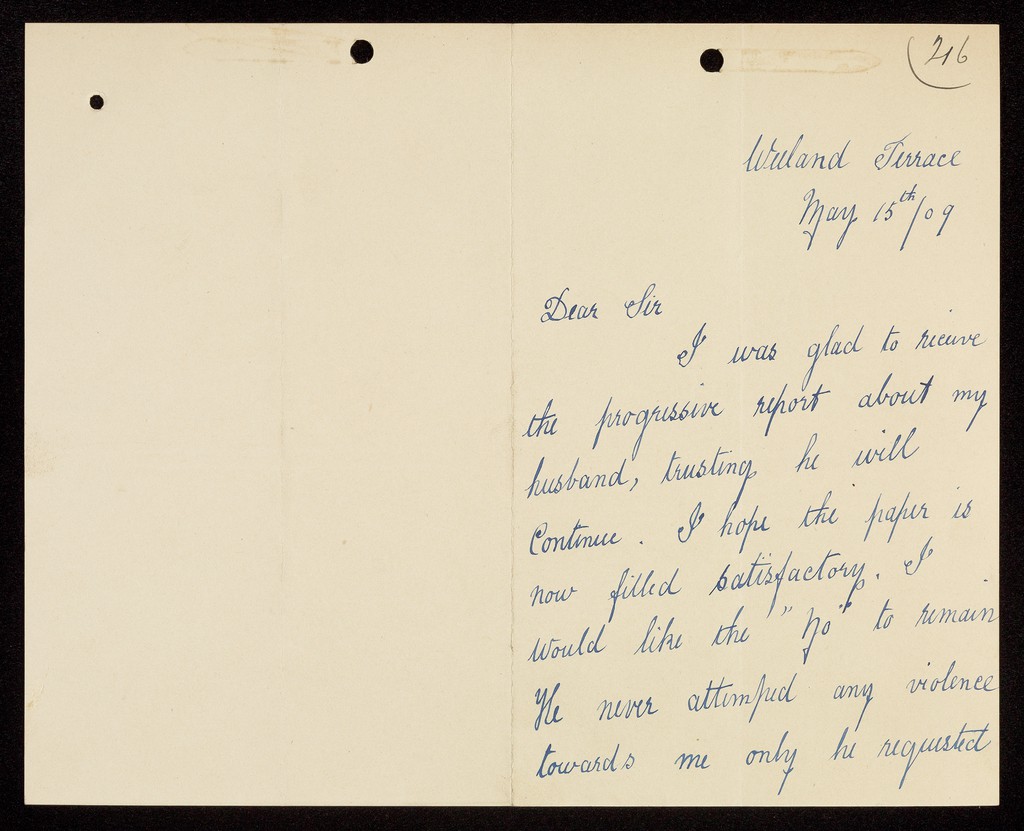 216
Welland Terrace
May 15th/09
Dear Sir
I was glad to recieve
the progressive report about my
husband, trusting he will
Continue. I hope the paper is
now filled satisfactory. I
would like the "No" to remain
He never attemped any violence
towards me only he requested